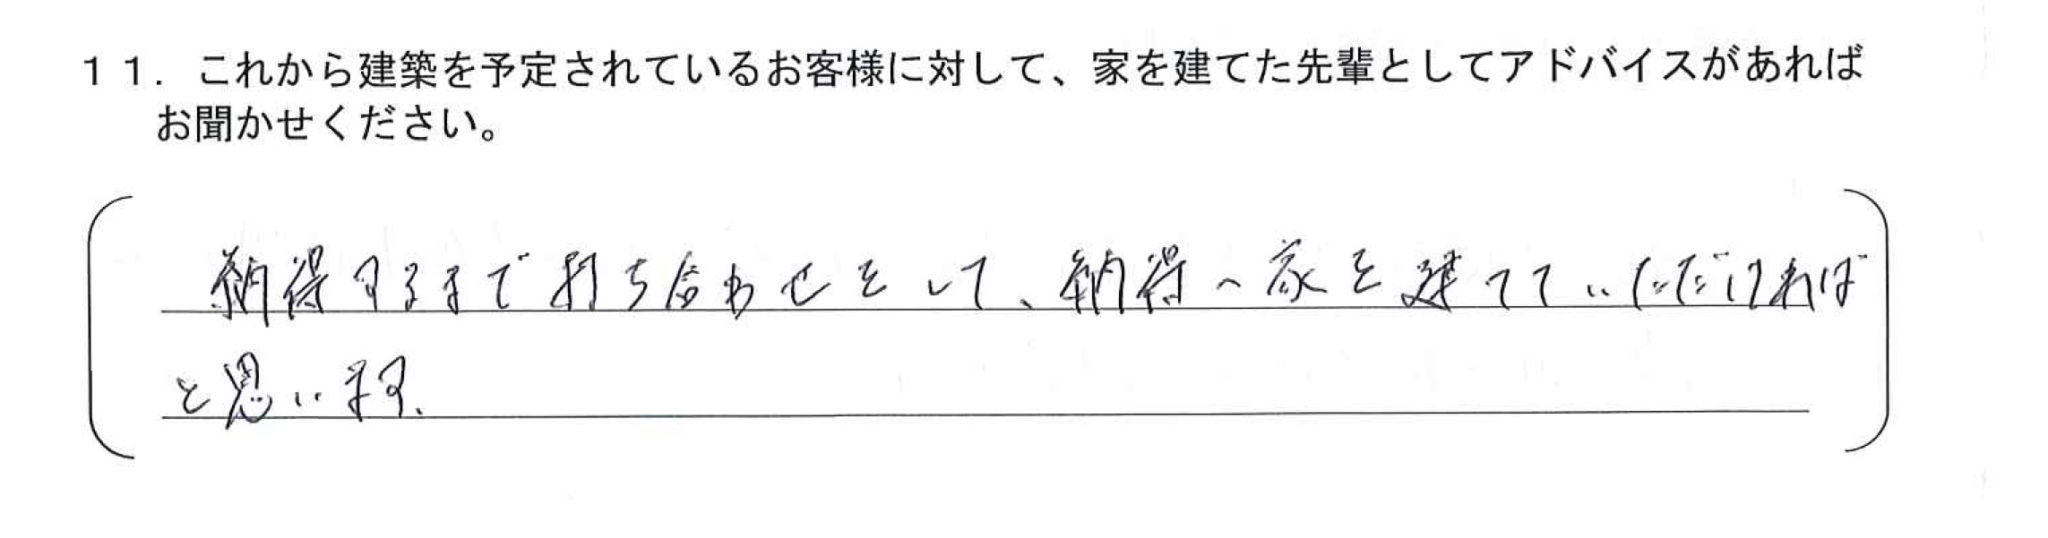 １１．これから建築を予定されているお客様に対して、家を建てた先輩としてアドバイスがあれば
お聞かせください。
納得するまで打ち合わせをして、納得の家を建てていただければ
と思います。